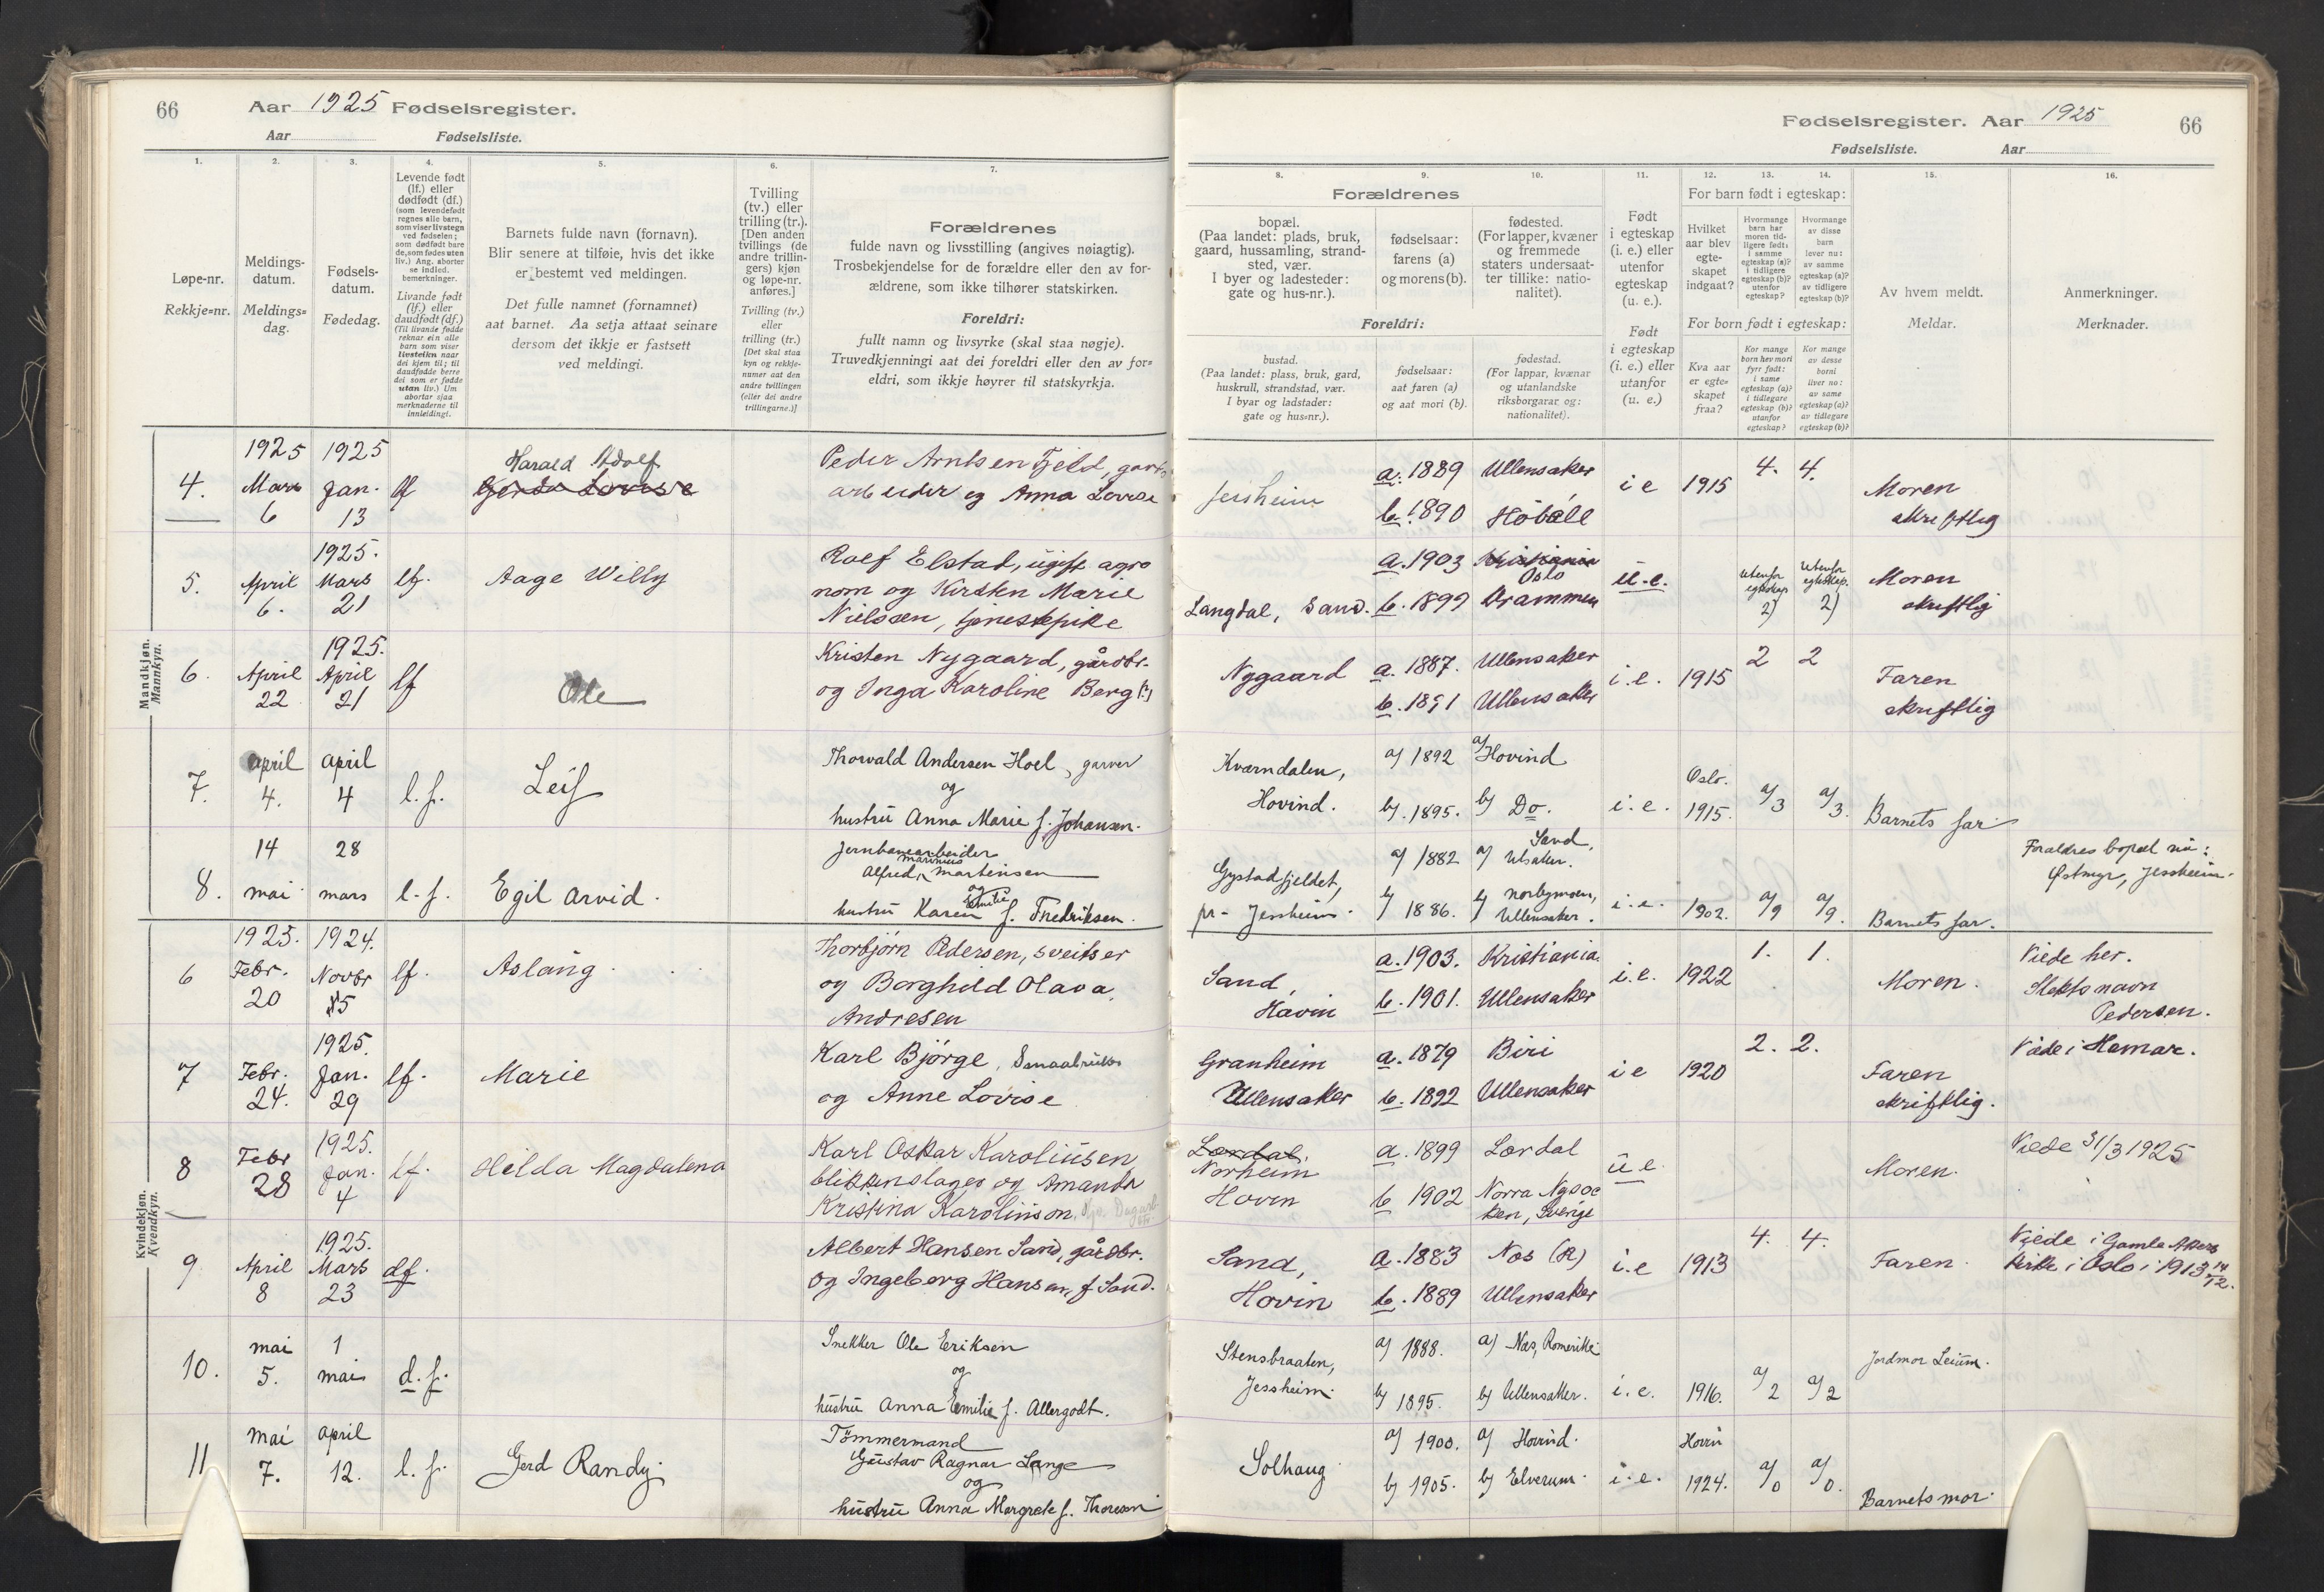 66 Aar 1925 Fødselsregister.
Aar Fødselsliste.
1. 2. 3. 4. 5. 6. 7.
Løpe-nr.
Rekkje=nr.
Meldings-
datum.
Meldings=
dag.
Fødsels-
datum.
Fødedag.
Levende født
(lf.) eller
dødfødt (df.)
(som levendefødt
regnes alle barn,
som viser livstegn
ved fødselen;
som dødfødt bare
de, som fødes uten
liv.) Ang. aborter
se indled.
bemerkninger.
Livande født
(lf.) eller
daudfødt (df.)
(Til livande fødde
reknar ein alle
barn som viser
livsteikn naar
dei kjem til; til
daudfødde berre
dei som er fødde
utan liv.) Um
abortar sjaa
merknaderne til
innleiding.
Barnets fulde navn (fornavn).
Blir senere at tilføie, hvis det ikke
er bestemt ved meldingen.
Det fulle namnet (fornamnet)
aat barnet. Aa setja attaat seinare
dersom det ikkje er fastsett
ved meldingi.
Tvilling
(tv.) eller
trilling (tr.).
[Den anden
tvillings (de
andre trillin-
gers) kjøn
og løpe-nr.
anføres.]
Tvilling (tv.)
eller
trilling (tr.)
[Det skal staa
kyn og rekkje-
numer aat den
andre tvillingen
(eller dei andre
trillingarne.)]
Forældrenes
fulde navn og livsstilling (angives nøiagtig).
Trosbekjendelse for de forældre eller den av for-
ældrene, som ikke tilhører statskirken.
Foreldri:
fullt namn og livsyrke (skal staa nøgje).
Truvedkjenningi aat dei foreldri eller den av for=
eldri, som ikkje høyrer til statskyrkja.
Mandkjøn.
Mannkyn.
4. 1925 Mars 6 1925 Jan. 13 lf Harald Adolf
Gerda Lovise
Peder Arntsen Fjeld, gards
arbeider og Anna Lovise
5. April 6. 1925. Mars 21 lf. Aage Willy
Rolf Elstad, ugift agro
nom og Kirsten Marie
Nielsen, tjenestepike
6. April 22 1925. April 21 lf Ole
Kristen Nygaard, gårdbr.
og Inga Karoline Berg
7. april 4. april 4 l.f. Leif
Thorvald Andersen Hoel, garver
og
hustru Anna Marie f. Johansen.
8. 14 mai 28 mars l.f. Egil Arvid.
Jernbanearbeider
Alfred Marinius Martinsen
og
hustru Karen Emilie f. Fredriksen.
Kvindekjøn.
Kvendkyn.
6 1925. Febr. 20 1924. Novbr 15 lf. Aslaug
Thorbjørn Pedersen, sveitser
og Borghild Olava
Andresen
7 Febr. 24. 1925. Jan. 29 lf. Marie
Karl Bjørge, Smaabruker
og Anne Lovise
8 Febr 28 1925. Jan. 4 lf. Hilda Magdalena
Karl Oskar Karoliusen
blikkenslager og Amanda
Kristina Karolinson
9 April 8 1925. Mars 23 df.
Albert Hansen Sand, gårdbr.
og Ingeborg Hansen, f Sand.
10. mai 5. 1 mai d.f.
Snekker Ole Eriksen
og
hustru Anna Emilie f. Allergodt.
11 mai 7. april 12. l.f. Gerd Randy
Tömmermand
Gustav Ragnar Lange
og
hustru Anna Margrete f. Thoresen
Fødselsregister. Aar 1925 66
Fødselsliste. Aar
8. 9. 10. 11. 12. 13. 14. 15. 16.
Forældrenes
bopæl.
(Paa landet: plads, bruk,
gaard, hussamling, strand-
sted, vær.
I byer og ladesteder:
gate og hus-nr.).
fødselsaar:
farens (a)
og morens (b).
fødested.
(For lapper, kvæner
og fremmede
staters undersaat-
ter tillike: natio-
nalitet).
Foreldri:
bustad.
(Paa landet: plass, bruk, gard,
huskrull, strandstad, vær.
I byar og ladstader:
gate og hus=nr.).
fødselsaar:
aat faren (a)
og aat mori (b).
fødestad.
(For lappar, kvænar
og utanlandske
riksborgarar og:
nationalitet).
Født
i egteskap
(i. e.) eller
utenfor
egteskap
(u. e.).
Født
i egteskap
(i. e.) eller
utanfor
(u. e.)
For barn født i egteskap:
Hvilket
aar blev
egte-
skapet
indgaat?
Hvormange
barn har
moren tid-
ligere født:
i samme
egteskap (a)?
i tidligere
egteskap (b)?
utenfor
egteskap?
Hvormange
av disse
barn
lever nu:
av samme
egteskap (a)?
av tidligere
egteskap (b)?
For born født i egteskap:
Kva aar
er egte=
skapet
fraa?
Kor mange
born hev mori
fyrr født:
i same
egteskap (a)?
i tidlegare
egteskap (b)?
utanfor
egteskap?
Kor mange
av desse
borni
liver no:
av same
egteskap (a)?
av tidlegare
egteskap (b)?
Av hvem meldt.
Meldar.
Anmerkninger.
Merknader.
Jessheim a. 1889 Ullensaker i e 1915 4. 4. Moren
b. 1890 Hobøl skriftlig
a. 1903 Kristiania Oslo u.e. Utenfor egteskap 2) Utenfor egteskap. 2) Moren
Langdal, Sand. b. 1899 Drammen skriftlig
Nygaard a. 1887. Ullensaker i.e. 1915 2 2 Faren
b. 1891 Ullensaker skriftlig
Kværndalen, a) 1892 a) Hovind Oslo.
Hovind. b). 1895. b) Do. i.e. 1915. a/3 a/3. Barnets far
Gystadfjeldet, a) 1882 a) Sand, Ulsaker. Forældres bopæl nu:
Østmyr, Jessheim.
pr. Jessheim. b) 1886. b) Norbymoen, Ullensaker. i.e. 1902. a/9 a/9. Barnets far.
Sand, a. 1903. Kristiania i.e. 1922 1. 1. Moren. Viede her.
Hovin b. 1901. Ullensaker Slektsnavn
Pedersen.
Granheim a. 1879 Biri i e 1920 2. 2. Faren Viede i Hamar.
Ullensaker b. 1892 Ullensaker skriftlig.
Lærdal.
Norheim a. 1899 Lærdal u e. Moren. Viede 31/3 1925
Hovin b 1902 Norra Ny
Sverige
Sand, a. 1883 Nes (R) i.e 1913 4. 4. Faren. Viede i Gamle Akers
Hovin b. 1889 Ullensaker kirke i Oslo i 1913 14/12.
Stensbraaten, a) 1888. a) Næs, Romerike Jordmor Leium.
Jessheim. b) 1895. b) Ullensaker. i.e. 1916. a/2 a/2
Solhaug a) 1900. a) Hovind. Hovin
b) 1905. b) Elverum. i.e. 1924. a/0 a/0. Barnets mor.